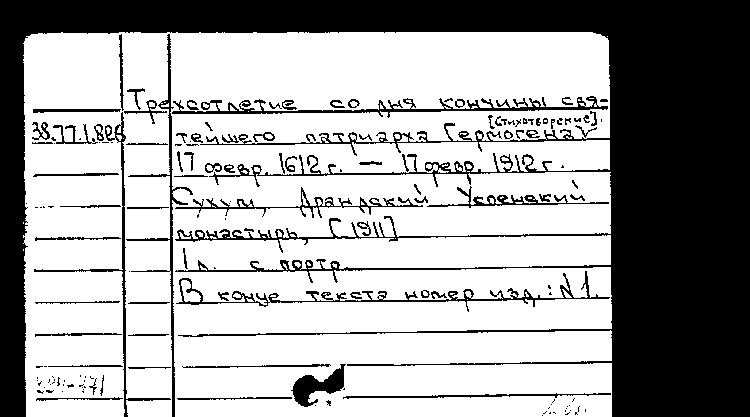 Трехсотлетие со дня кончины свя-
38.77.1.826 тейшего патриарха Гермогена [Стихотворение].
17 февр. 1612 г. — 17 февр. 1912 г.
Сухум, Драндский Успенский
монастырь, [1911]
1 л. с портр.
В конце текста номер изд.: N 1.